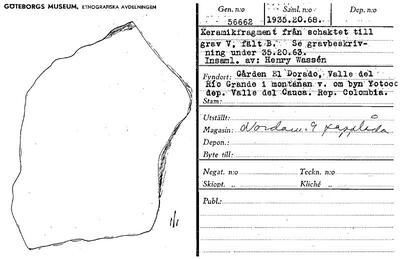 GÖTEBORGS MUSEUM, ETNOGRAFISKA AVDELNINGEN
1/1
Gen. n:o Saml. n:o Dep. n:o
56662 1935.20.68.
Keramikfragment från schaktet till
grav V, fält B. Se gravbeskriv-
ning under 35.20.63.
Insaml. av: Henry Wassén
Fyndort: Gården El Dorado, Valle del
Río Grande i montañan v. om byn Yotoco
dep. Valle del Cauca. Rep. Colombia.
Stam:
Utställt:
Magasin: Nordam. 9
Depon.:
Byte till:
Negat. n:o Teckn. n:o
Skiopt. „ Kliché „
Publ.: